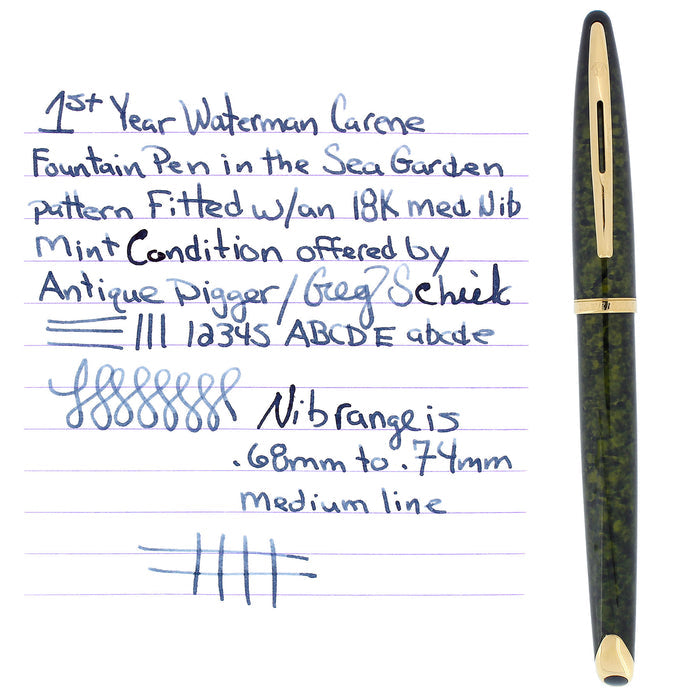 1st Year Waterman Carene
Fountain Pen in the Sea Garden
pattern Fitted w/an 18K med Nib
Mint Condition offered by
Antique Digger/Greg Schiek
111 12345 ABCDE abcde
Nib range is
.68mm to .74mm
medium line